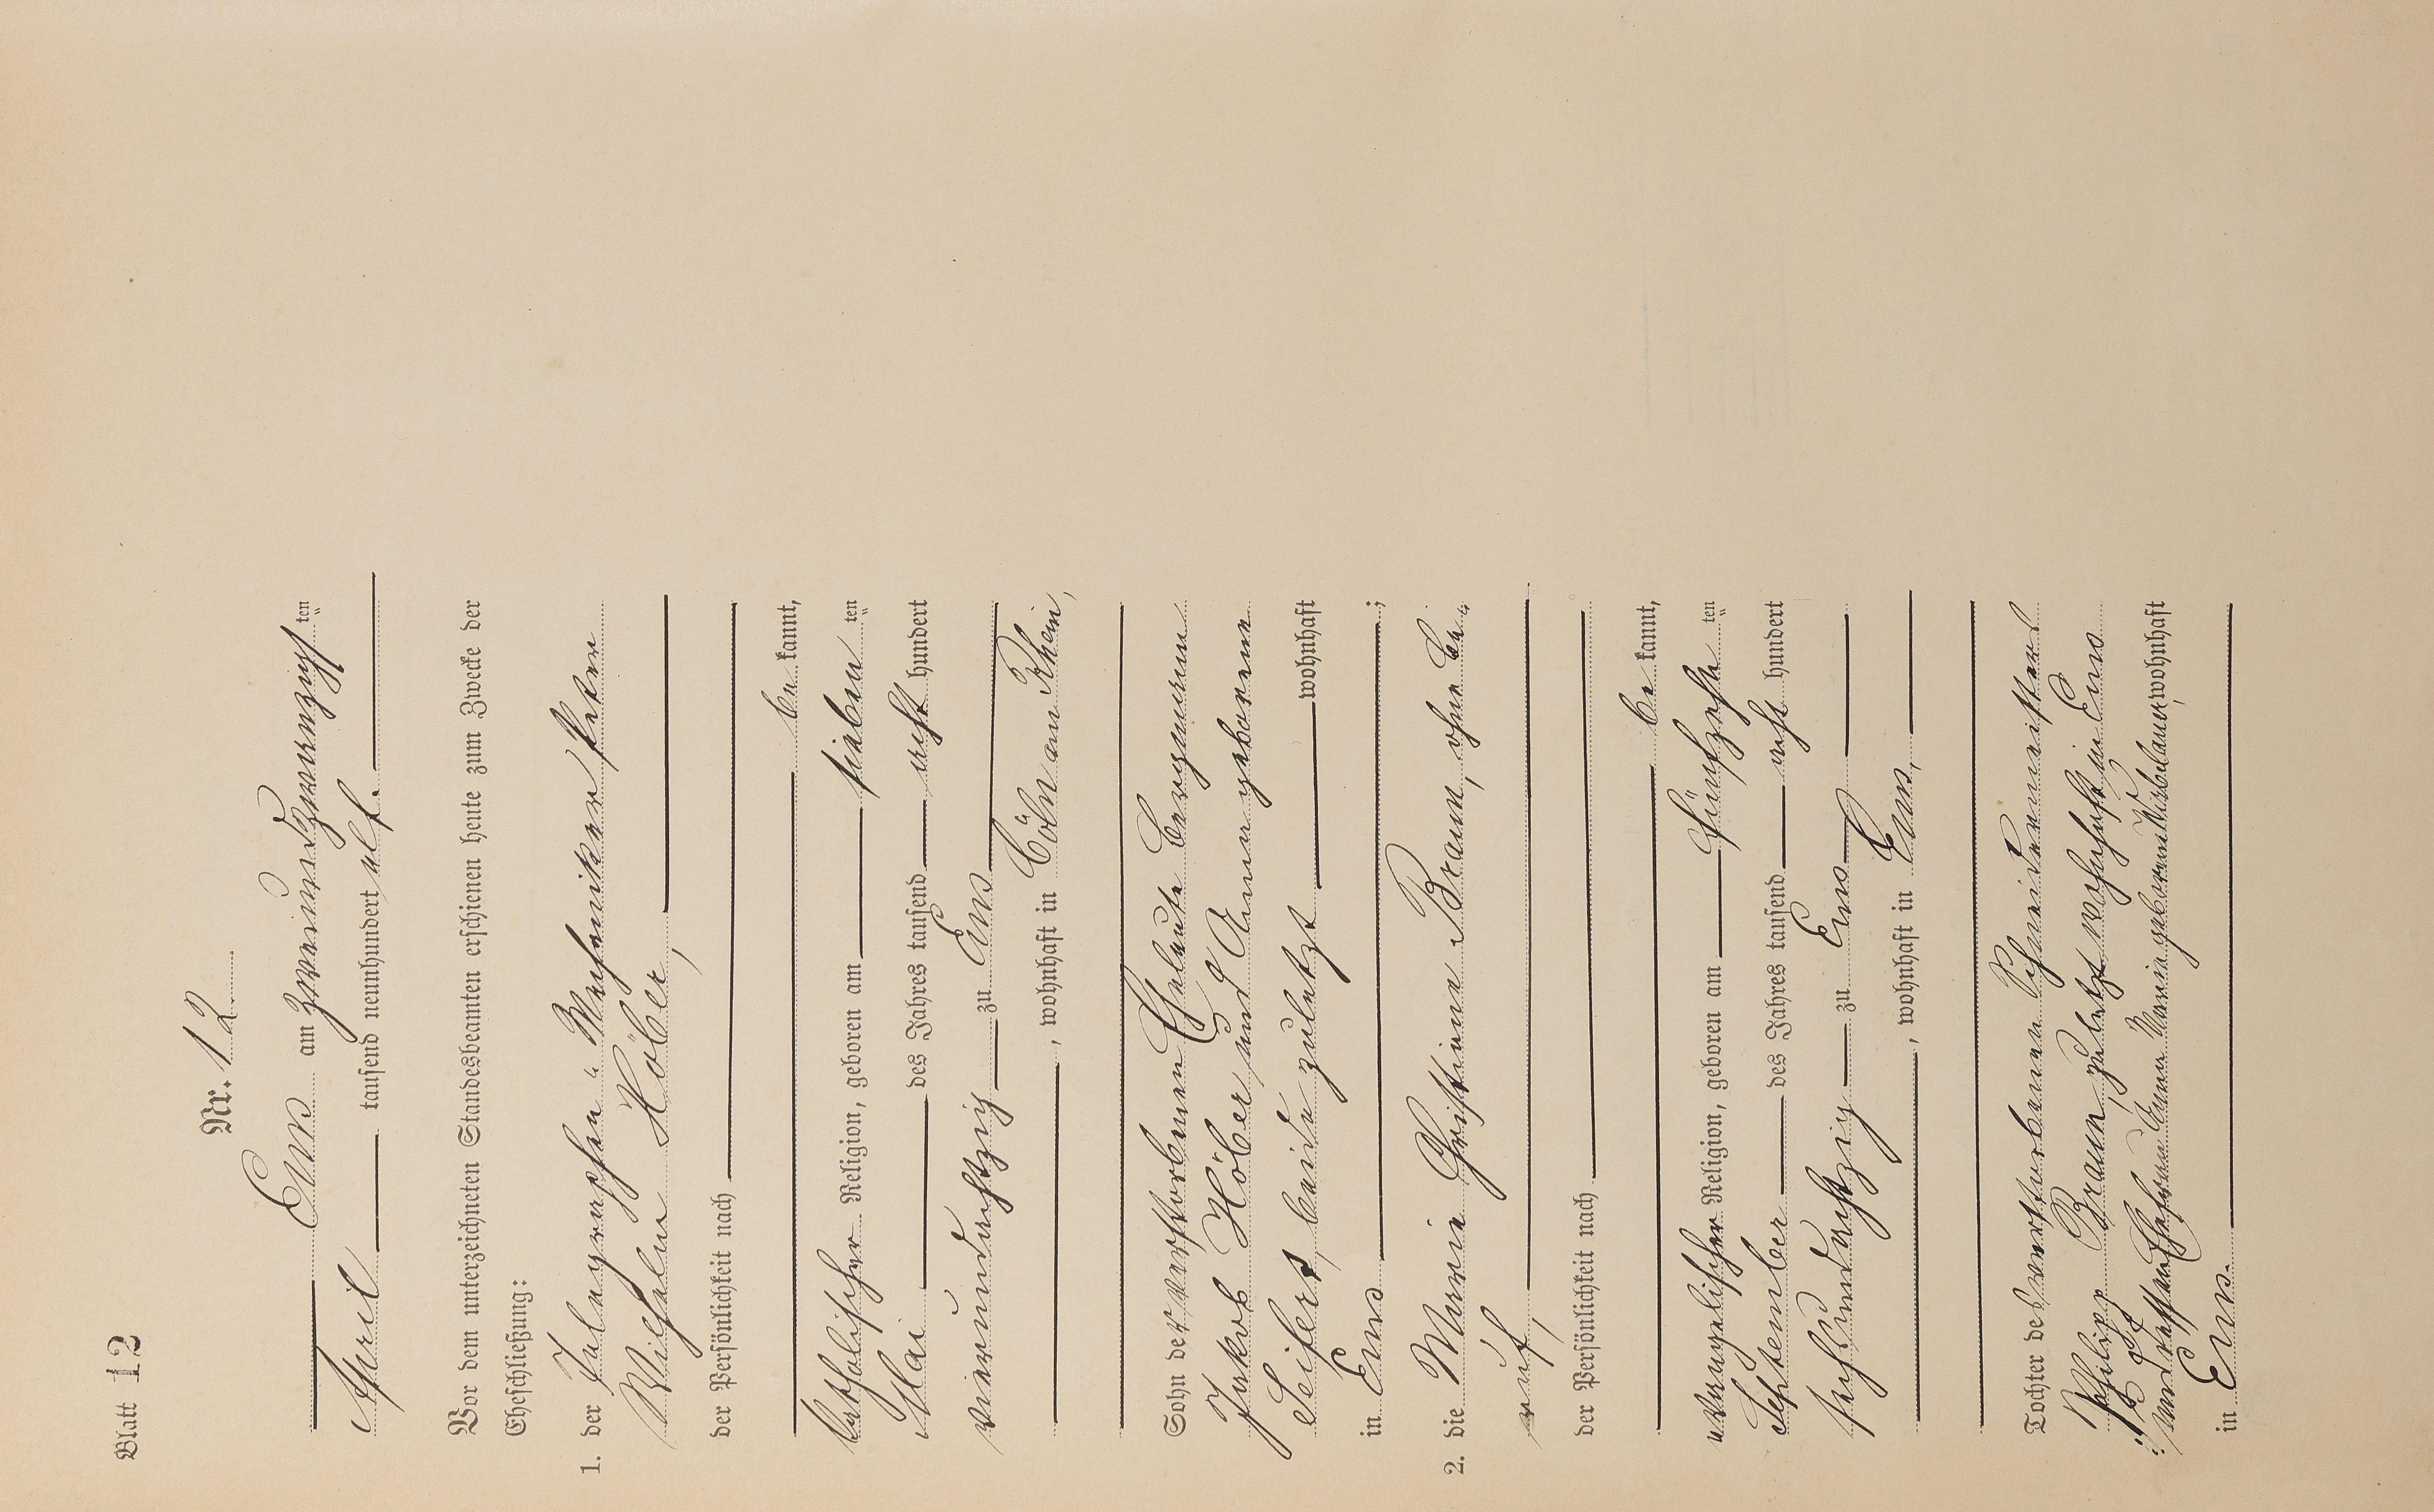 Blatt 12
Nr. 12
Ems am zweiundzwanzigsten
April tausend neunhundert elf.
Vor dem unterzeichneten Standesbeamten erschienen heute zum Zwecke der
Eheschließung:
1. der Telegraphen-Mechaniker Peter
Wilhelm Höber,
der Persönlichkeit nach
bekannt,
katholischer Religion, geboren am siebenten
Mai des Jahres tausend acht hundert
vierundachtzig zu Ems
, wohnhaft in Cöln am Rhein,
Sohn der verstorbenen Eheleute Bergmann
Jakob Höber und Anna geborene
Seifert, beide zuletzt wohnhaft
in Ems ;
2. die Marie Christine Braun, ohne Be-
ruf,
der Persönlichkeit nach
bekannt,
evangelischer Religion, geboren am fünfzehnten
September des Jahres tausend acht hundert
sechsundachtzig zu Ems
, wohnhaft in Ems,
Tochter des verstorbenen Schreinermeisters
Philipp Braun, zuletzt wohnhaft in Ems
und dessen Ehefrau Anna Maria geborene wohnhaft
in Ems.